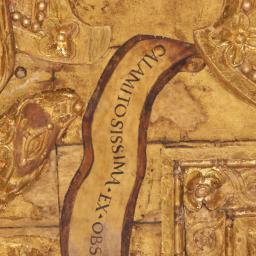 CALAMITOSISSIMA · EX · OBS